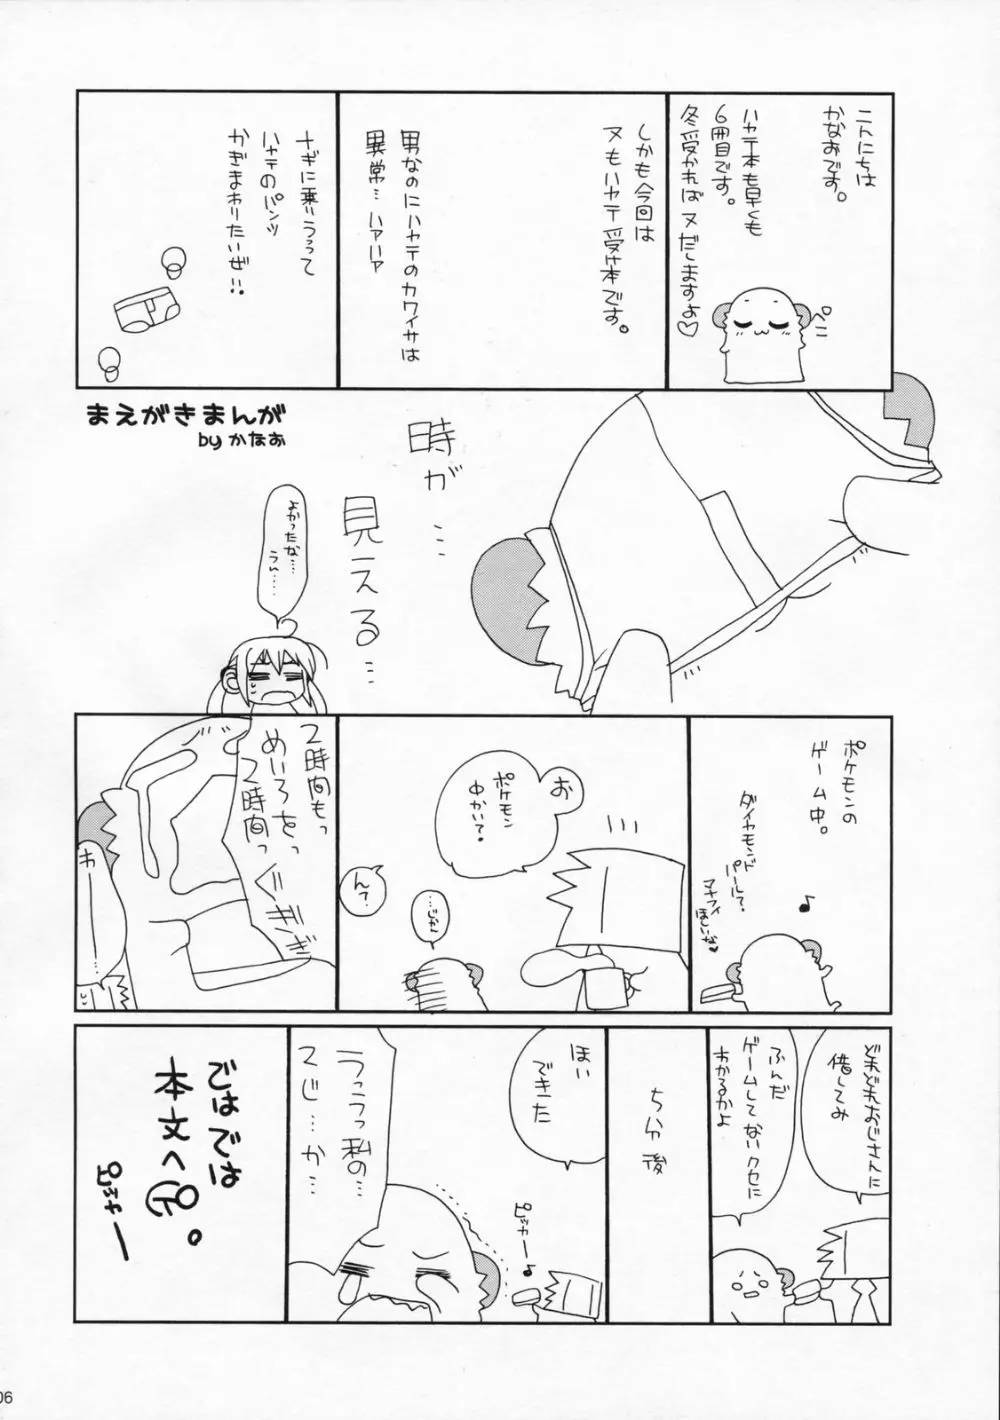 こんにちは
かなおです。
ハヤテ本も早くも
6冊目です。
冬受かればヌだしますよ♡
ペこ
しかも今回は
ヌもハヤテ受け本です。
男なのにハヤテのカワイサは
異常… ハァハァ
ナギに乗りうつって
ハヤテのパンツ
かぎまわりたいぜ!!
まえがきまんが
by かなお
時が…
見える…
よかったな…
うん……
ポケモンの
ゲーム中。
ダイヤモンド
パールで。
マナフィ
ほしいな♥
♪
お
ポケモン
中かい?
…じゃん
ん?
2時間もっ
めいろをっ
2時間っ
ぐぎぎぎ
わ
どれどれおじさんに
借してみ
ふんだ
ゲームしてないクセに
わかるかよ
5分後
ほい
できた
ピッカー♪
うっうっ私の…
スじ…か…
ではでは
本文へGO。